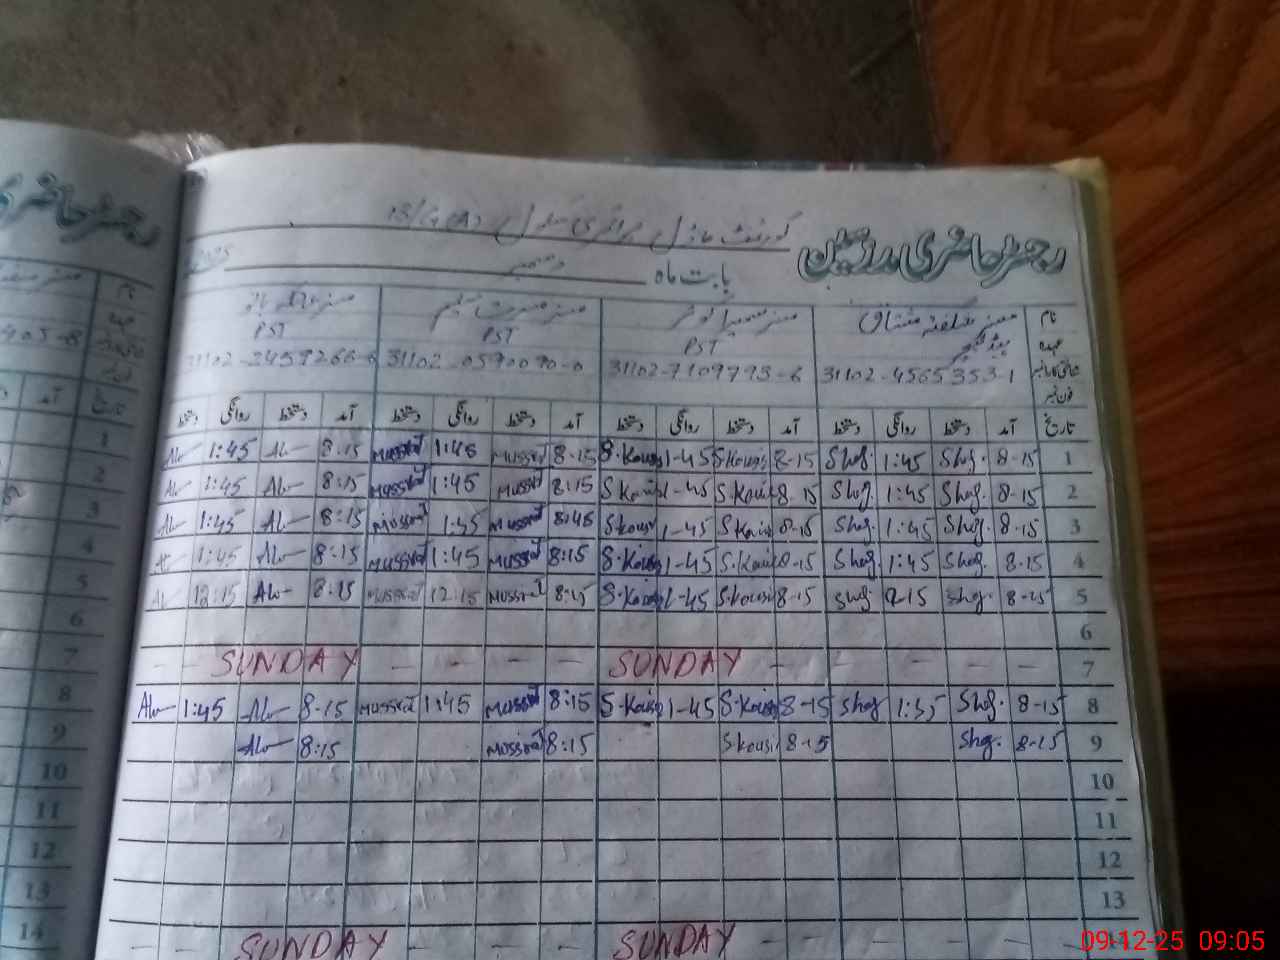 رجسٹر حاضری مدرسین
گورنمنٹ ماڈل پرائمری سکول 13/G(A)
بابت ماہ دسمبر 2025
نام مسز شگفتہ مشتاق مسز سمیرا کوثر مسز مسرت
عہدہ PST PST PST
31102-4565353-1 31102-7109793-6 31102-0590090-0 31102-2459266-6
فون نمبر
تاریخ آمد دستخط روانگی دستخط آمد دستخط روانگی دستخط آمد دستخط روانگی دستخط آمد دستخط روانگی دستخط
1 8-15 Shg. 1:45 Shg. 8-15 S.Kousir 1-45 S.Kousir 8-15 Mussrat 1:45 Mussrat 8:15 1:45
2 8-15 Shg. 1:45 Shg. 8-15 S.Kousir 1-45 S.Kousir 8:15 Mussrat 1:45 Mussrat 8:15 1:45
3 8-15 Shg. 1:45 Shg. 8-15 S.Kousir 1-45 S.Kousir 8:45 Mussrat 1:45 Mussrat 8:15 1:45
4 8-15 Shg. 1:45 Shg. 8-15 S.Kousir 1-45 S.Kousir 8:15 Mussrat 1:45 Mussrat 8:15 1:45
5 8-15 Shg. Shg. 8-15 S.Kousir 1-45 S.Kousir 8:15 Mussrat 12:15 Mussrat 8:15 12:15
6
7 SUNDAY SUNDAY
8 8-15 Shg. Shg 8-15 S.Kousir 1-45 S.Kousir 8:15 Mussrat 1:45 Mussrat 8-15 1:45
9 8-15 Shg. 8-15 S.Kousir 8:15 Mussrat 8:15
10
11
12
13
SUNDAY SUNDAY
رجسٹر حاضری
نام
عہدہ
405-8
تاریخ
آمد
1
2
3
4
5
6
7
8
9
10
11
12
13
14
09-12-25 09:05